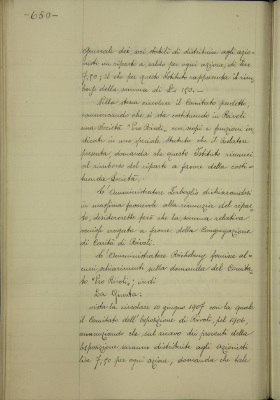 -650-
generale dei soci stabilì di distribuire agli azio-
nisti un riparto a saldo per ogni azione, di Lire
7,50; il che per questo Istituto rappresenta il rim-
borso della somma di L.
Nella stessa circolare il Comitato predetto,
annunciando che si sta costituendo in Rivoli
una Società "Pro Rivoli", con scopi e funzioni in-
dicate in uno speciale Statuto che il Relatore
presenta, domanda che questo Istituto rinunci
al rimborso del riparto a favore della costi-
tuenda Società.
L'Amministratore dichiarandosi
in massima favorevole alla rinuncia del ripar-
to, desidererebbe però che la somma relativa
venisse erogata a favore della Congregazione
di Carità di Rivoli.
L'Amministratore fornisce al-
cuni schiarimenti sulla domanda del Comita-
to "Pro Rivoli"; indi
La Giunta:
vista la circolare 10 giugno 1907 con la quale
il Comitato dell'Esposizione di Rivoli, pel 1906,
annunziando che sul ricavo dei proventi della
Esposizione verranno distribuite agli azionisti
lire 7,50 per ogni azione, domanda che tale